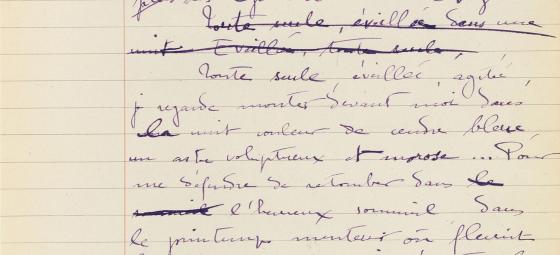 Toute seule, éveillée dans une
nuit. Eveillée, toute seule,
Toute seule, éveillée, agitée,
je regarde monter devant moi dans
la nuit couleur de cendre bleue
un astre voluptueux et morose ... Pour
me défendre de retomber dans le
sommeil l'heureux sommeil dans
le printemps menteur où fleurit